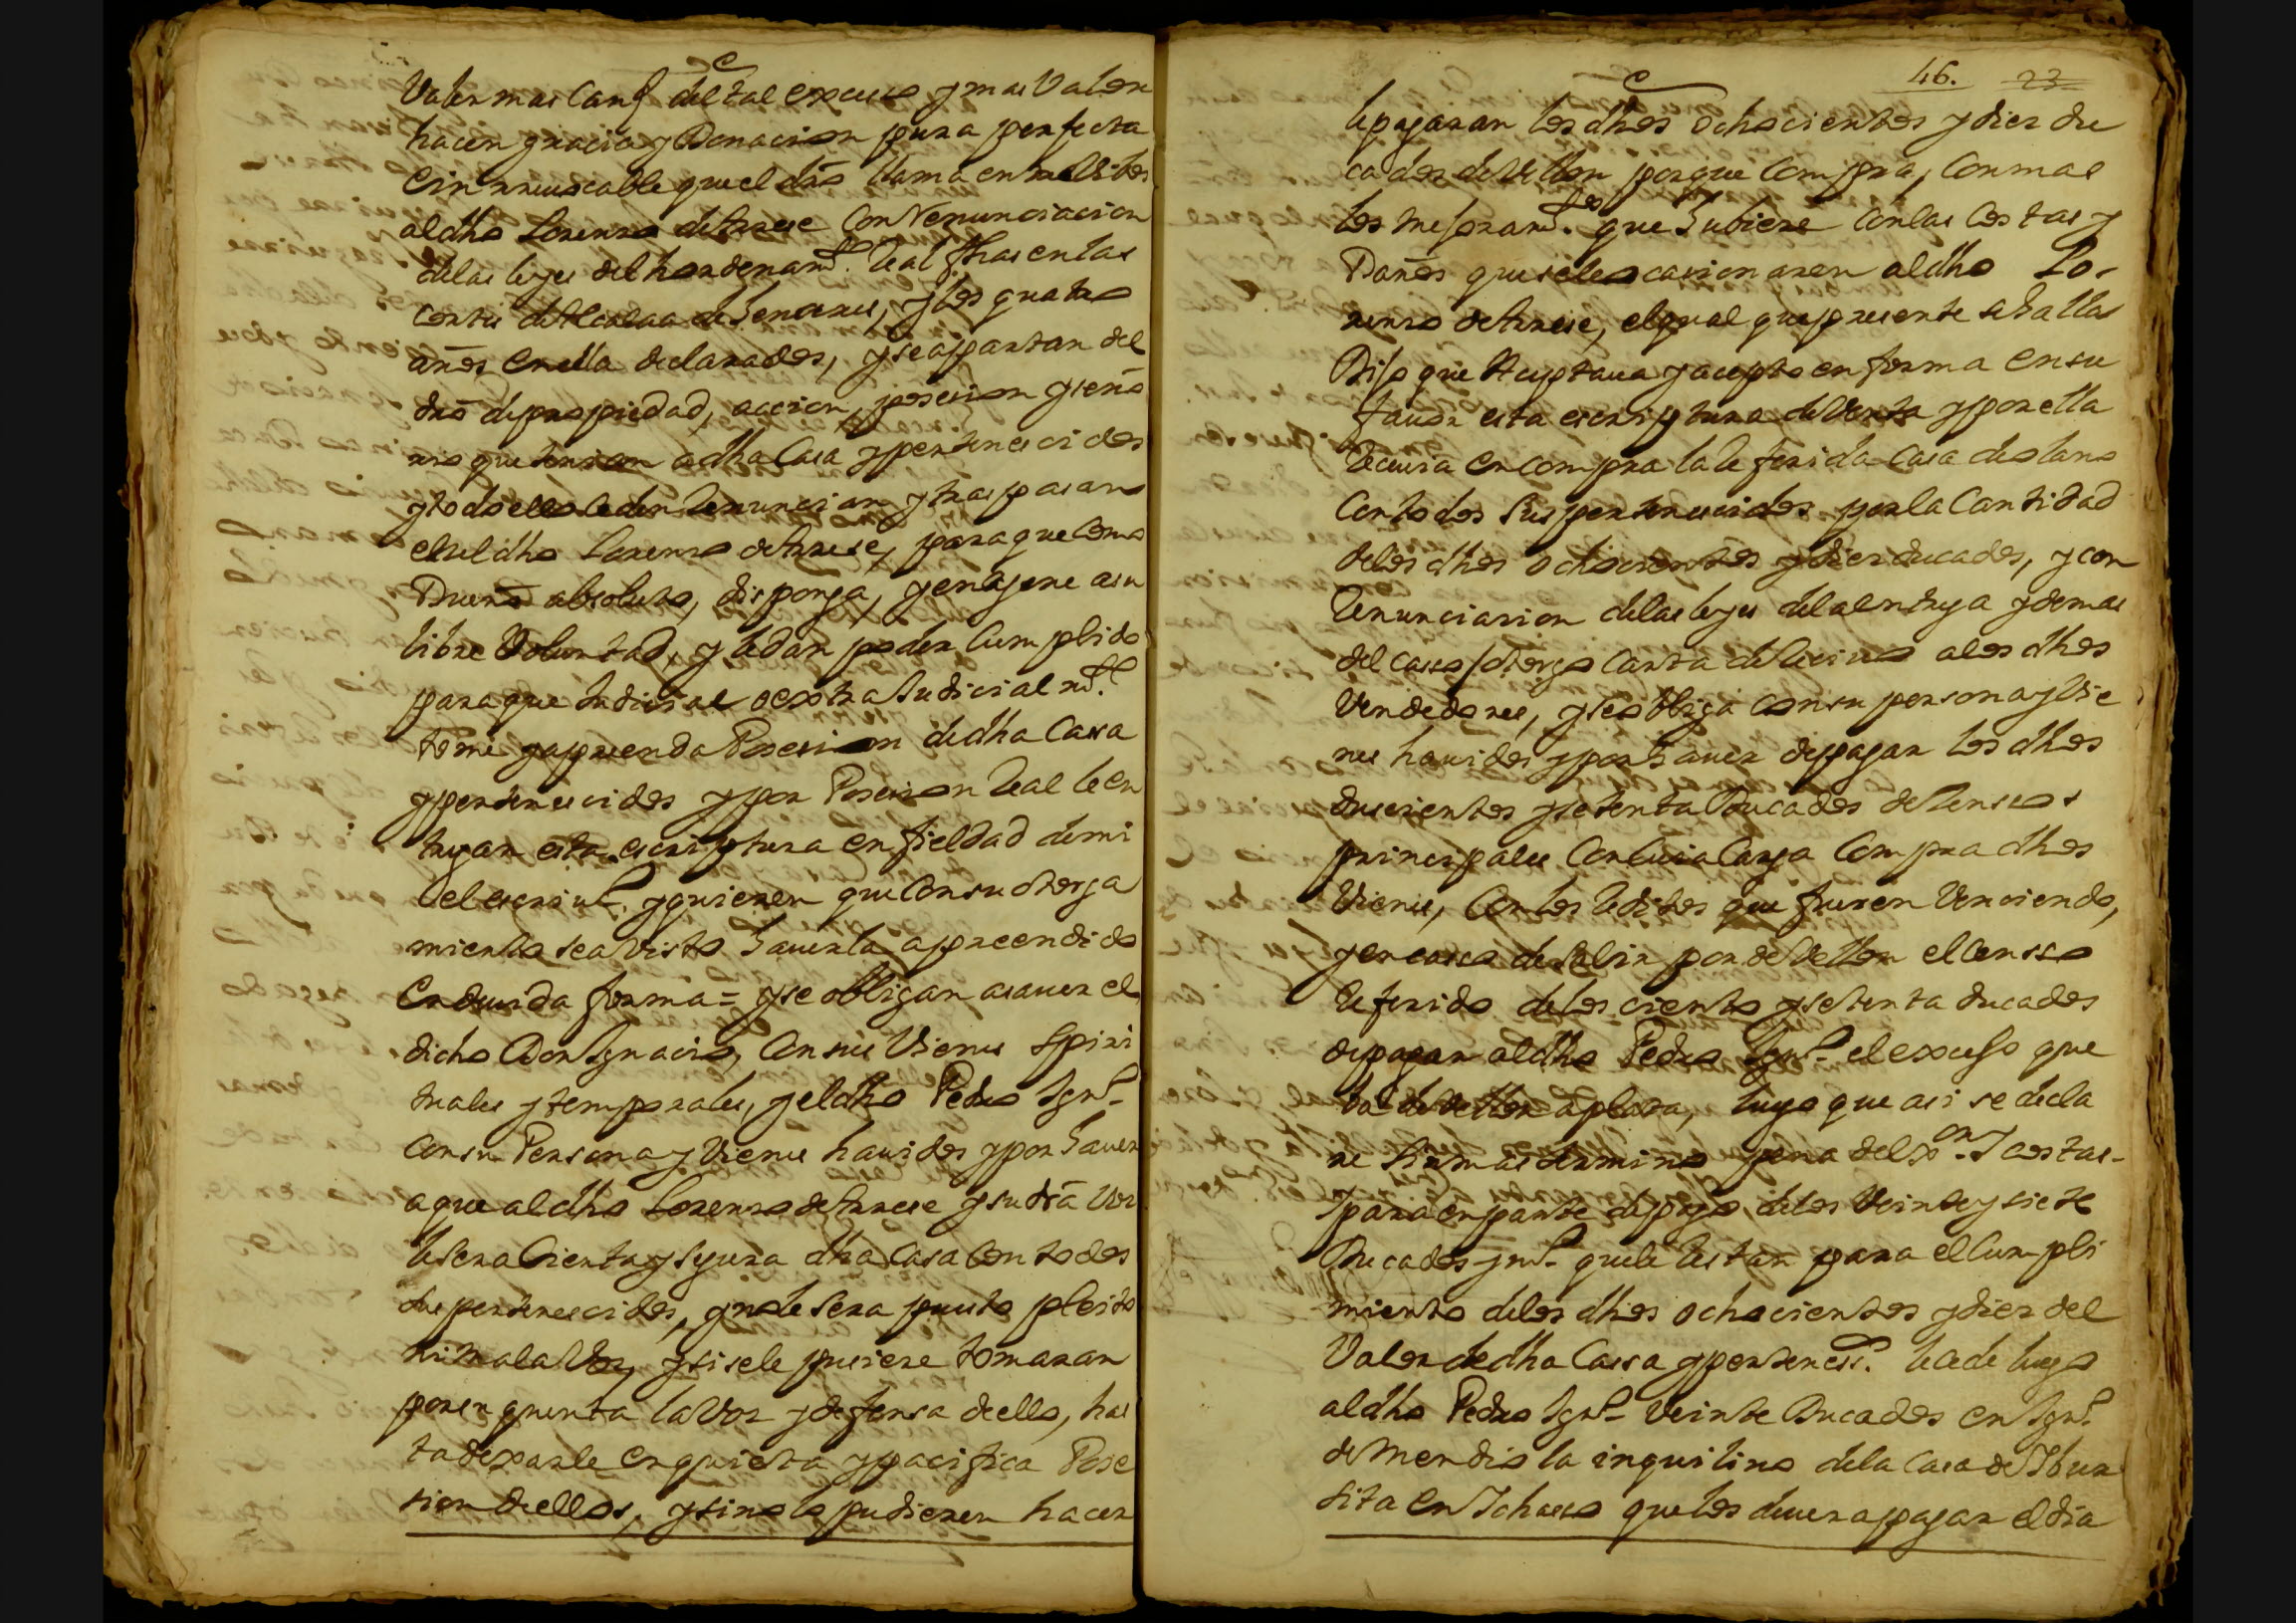 Valer mas Cant del tal exceso y mas Valor
hacen gracia y Donacion pura perfecta
e inrrevocable que el dro llama entre Vibos
al dho Lorenzo de Arrese Con Renunciacion
delas leyes del hordenamto Real fhas en las
Cortes de Alcala de Henares, y los quatro
años en ella declarados, y se apartan del
dro de propiedad, accion, posesion y seño
rio que tenian a dha Casa y pertenecidos
y todo ello ceden Renuncian y traspasan
en el dho Lorenzo de Arrese, para que como
Dueño absoluto, disponga, y enajene a su
libre Voluntad, y le dan poder Cumplido
para que Judicial o extra Judicialmte
tome y aprenda Posesion de dha Casa
y pertenecidos y por Posesion Real le en
tregan esta escriptura en fieldad de mi
el escrivo. y quieren que con su otorga
miento sea Visto haverla apreendido
en devida forma = y se obligan a saver el
dicho Don Ignacio, Con sus Vienes Spiri
tuales y temporales, y el dho Pedro Ignº
con su Persona y Vienes havidos y por haver
a que al dho Lorenzo de Arrese y su dra Voz
le sera Cierta y segura dha Casa Con todos
sus pertenecidos, y no le sera puesto pleito
ni mala Voz, y si se le pusiere tomaran
por en quenta la Voz y defensa de ello, has
ta dexarle en quieta y pacifica Pose
sion de ellos, y si no lo pudieren hacer
46. 23
le pagaran los dhos ochocientos y diez du
cados de Vellon porque Compra, Con mas
los mejoramtos que Hubiere Con las Costas y
Daños que se le ocasionaren al dho Lo-
renzo de Arrese, el qual que presente se halla
Dijo que Aceptava y acepto en forma en su
favor esta escriptura de Venta y por ella
Recivia en compra la Referida Casa de olano
Con todos sus pertenecidos por la Cantidad
delos dhos ochocientos y diez ducados, y con
Renunciacion delas leyes dela entrega y demas
del caso otorga Carta de Recivo a los dhos
Vendedores, y se obliga con su persona y Vie
nes havidos y por haver de pagar los dhos
Ducientos y setenta Ducados de Censos
principales Con Cuia Carga Compra dhos
Vienes, Con los Reditos que fueren Venciendo,
y en caso de Salir por de Vellon el Censso
Referido delos ciento y setenta ducados
de pagar al dho Pedro Ignº el exceso que
Va de Vellon a plata, luego que asi se decla
re sin mas termino pena de exon y costas-
Y para en parte de pago delos Veinte y siete
Ducados que le Restan para el Cumpli
miento delos dhos ochocientos y diez del
Valor de dha Cassa y pertenecs. le cede luego
al dho Pedro Ignº Veinte Ducados en Ignº
de Mendiola inquilino dela Casa de
sita en que los devera pagar el dia